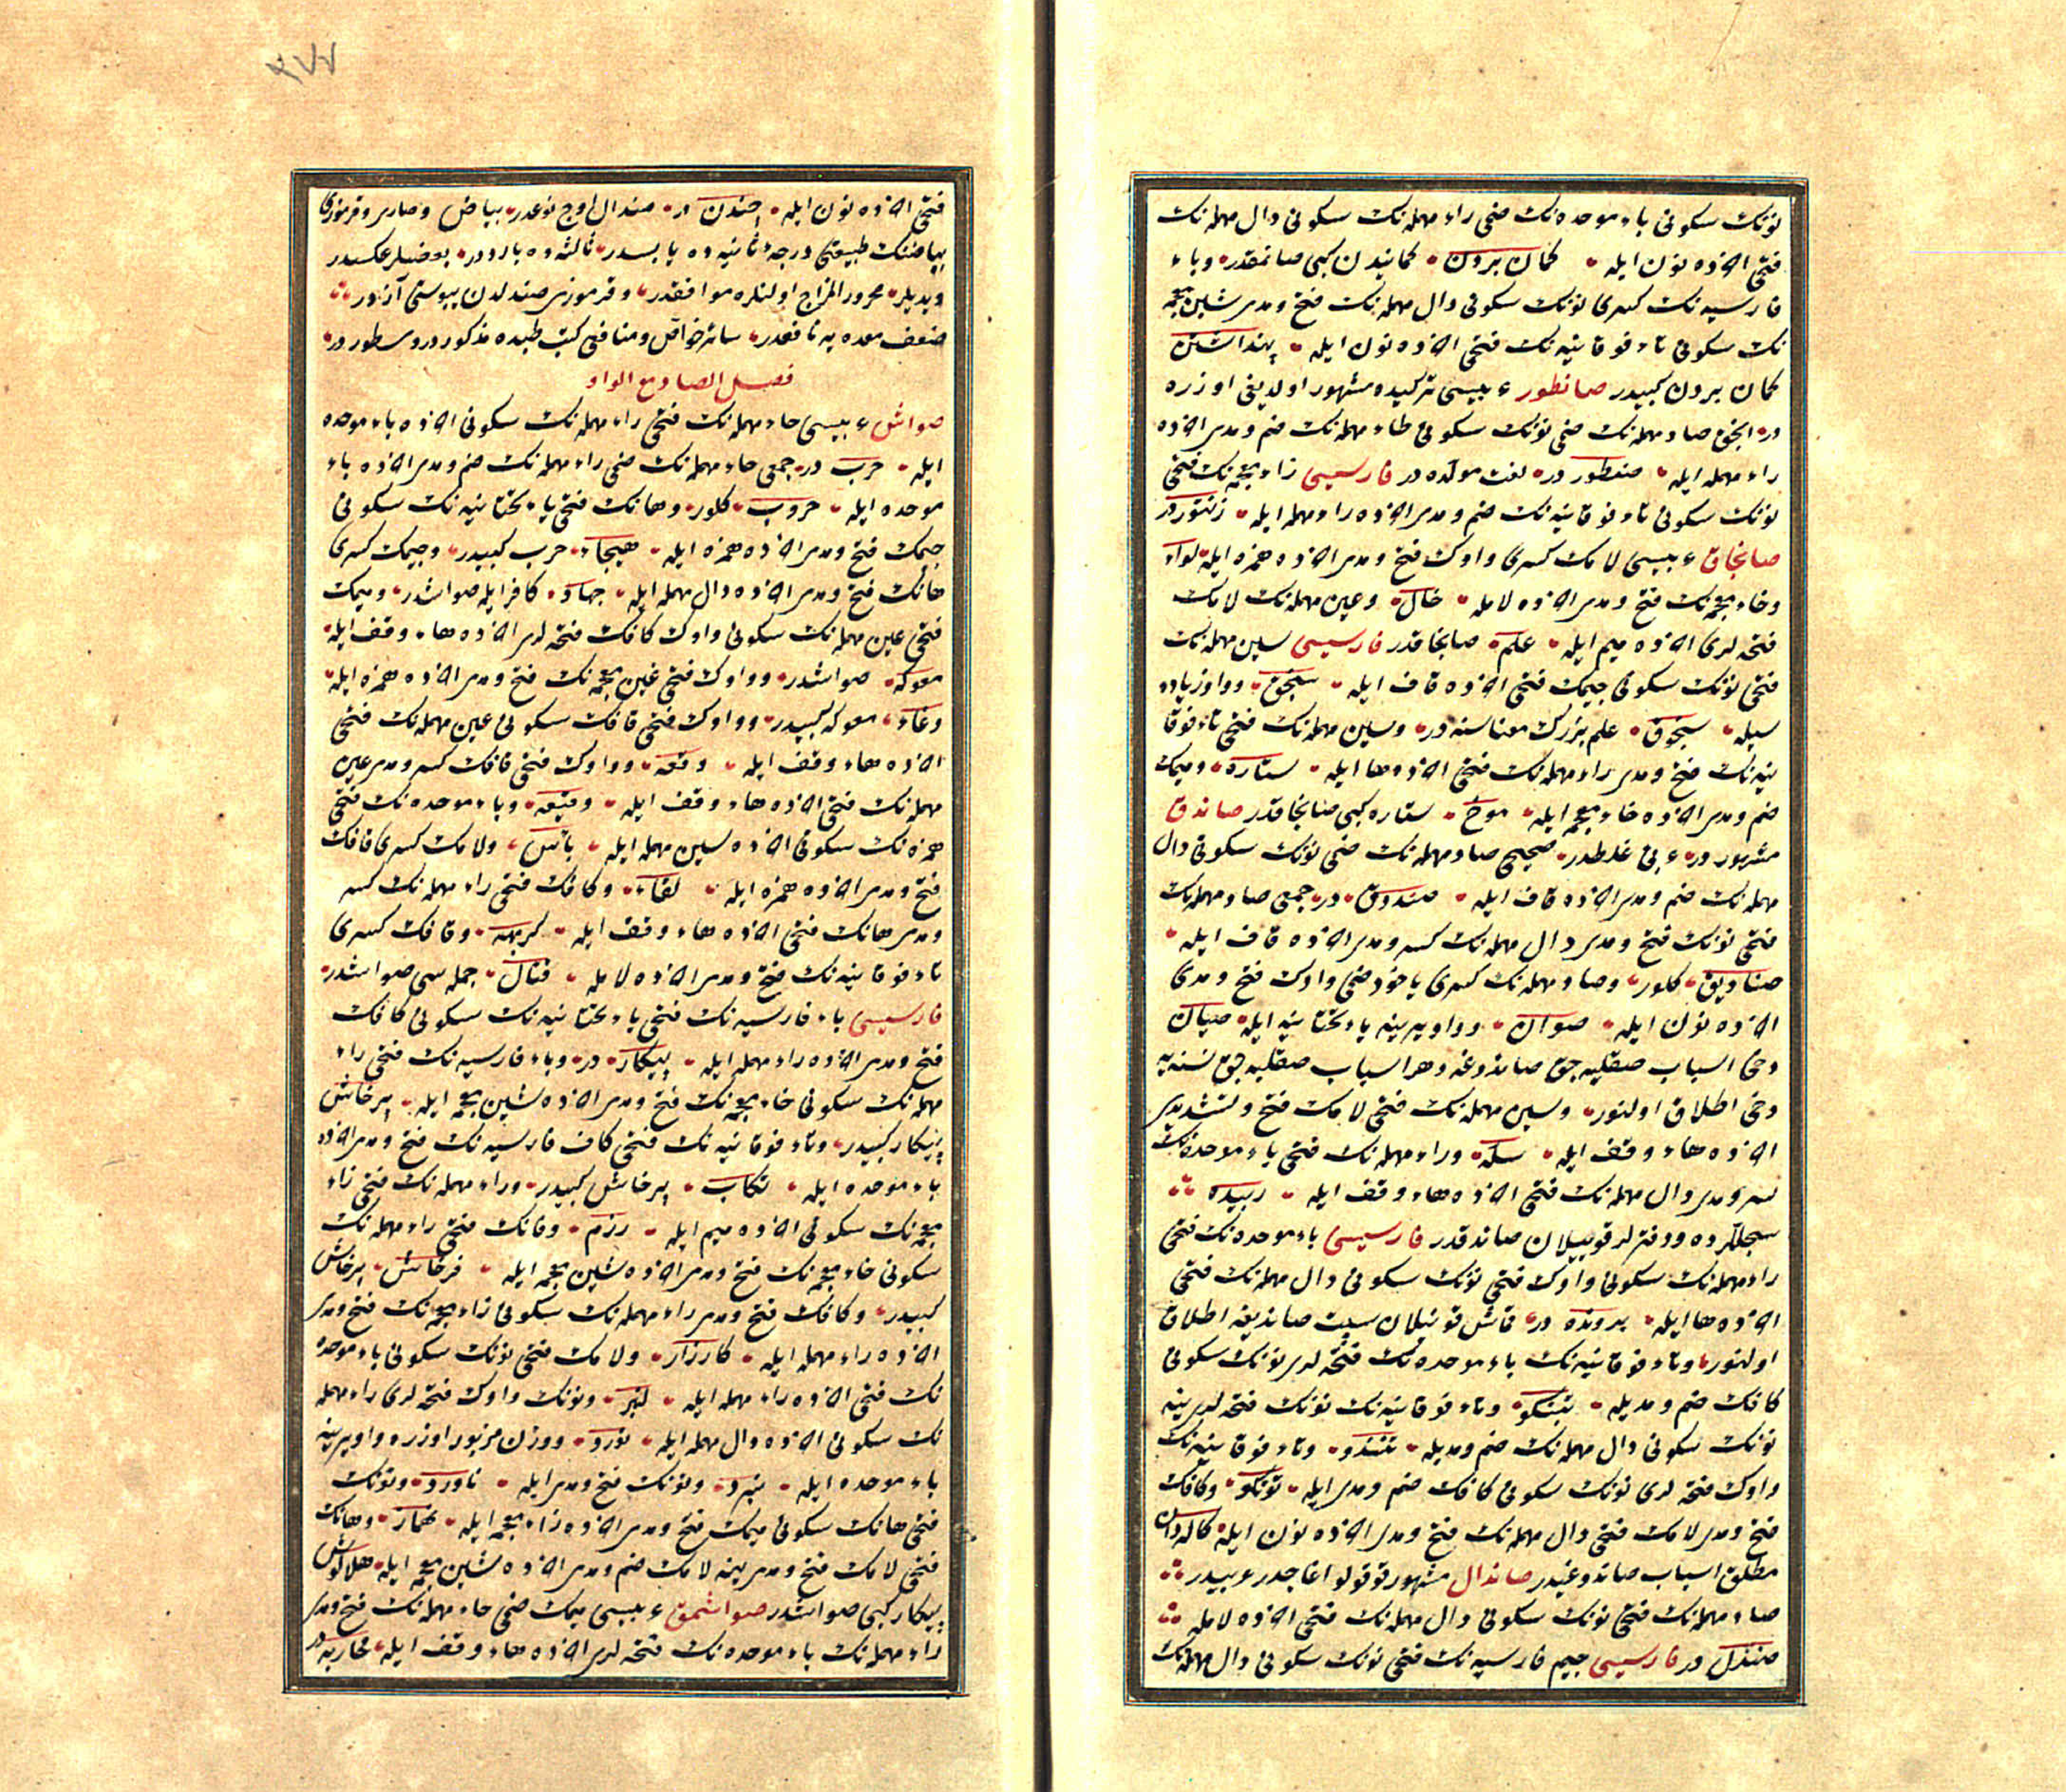 نونك سكونى باء موحده نك ضمى راء مهمله نك سكونى دال مهمله نك
فتحى اخرده نون ايله كمان بردن كمانيدن كبى صانمقدر وباء
فارسيه نك كسرى نونك سكونى دال مهمله نك فتح ومدى شين معجمه
نك سكونى تاء فوقانيه نك فتحى اخرده نون ايله پنداشتن
كمان بردن كبيدر صانطور عربيسى تركيده مشهور اولديغى اوزره
در انجق صاد مهمله نك ضمى نونك سكونى طاء مهمله نك ضم ومدى اخرده
راء مهمله ايله صنطور در لغت مولده در فارسيسى زاء معجمه نك فتحى
نونك سكونى تاء فوقانيه نك ضم ومدى اخرده راء مهمله ايله زنتور در
صانجاق عربيسى لامك كسرى واوك فتح ومدى اخرده همزه ايله لواء
وخاء معجمه نك فتح ومدى اخرده لامله خال وعين مهمله نك لامك
فتحه لرى اخرده ميم ايله علم صانجاقدر فارسيسى سين مهمله نك
فتحى نونك سكونى جيمك فتحى اخرده قاف ايله سنجق وواو زياده
سيله سنجوق علم بزرك معناسنه در وسين مهمله نك فتحى تاء فوقا
نيه نك فتح ومدى راء مهمله نك فتحى اخرده ها ايله ستاره وميمك
ضم ومدى اخرده خاء معجمه ايله موخ ستاره كبى صانجاقدر صاندق
مشهور در عربى غلطدر صحيحى صاد مهمله نك ضمى نونك سكونى دال
مهمله نك ضم ومدى اخرده قاف ايله صندوق در جمعى صاد مهمله نك
فتحى نونك فتح ومدى دال مهمله نك كسر ومدى اخرده قاف ايله
صناديق كلور وصاد مهمله نك كسرى ياخود ضمى واوك فتح ومدى
اخرده نون ايله صوان وواو يرينه ياء تحتانيه ايله صيان
دخى اسباب صقليه جق صاندوغه وهر اسباب صقليه جق نسنه يه
دخى اطلاق اولنور وسين مهمله نك فتحى لامك فتح وتشديدى
اخرده هاء وقف ايله سله وراء مهمله نك فتحى باء موحده نك
كسر ومدى دال مهمله نك فتحى اخرده هاء وقف ايله ربيده
سجللر ودفترلر قونيلان صاندقدر فارسيسى باء موحده نك فتحى
راء مهمله نك سكونى واوك فتحى نونك سكونى دال مهمله نك فتحى
اخرده ها ايله برونده در قماش قونيلان سپت صانديغه اطلاق
اولنور وتاء فوقانيه نك باء موحده نك فتحه لرى نونك سكونى
كافك ضم ومديله تبنكو وتاء فوقانيه نك نونك فتحه لرى ينه
نونك سكونى دال مهمله نك ضم ومديله تنندو وتاء فوقانيه نك
واوك فتحه لرى نونك سكونى كافك ضم ومدى ايله تونكو وكافك
فتح ومدى لامك فتحى دال مهمله نك فتح ومدى اخرده نون ايله كالدان
مطلق اسباب صاندوغيدر صاندال مشهور قوقولو اغاجدر عربيدر
صاد مهمله نك فتحى نونك سكونى دال مهمله نك فتحى اخرده لامله
صندل در فارسيسى جيم فارسيه نك فتحى نونك سكونى دال مهمله نك
فتحى اخرده نون ايله چندن در صندال اوج نوعدر بياض وصارى وقرمزى
بياضنك طبيعتى درجۀ ثانيه ده يابسدر ثالثه ده بارددر بعضيلر عكسيدر
ديديلر محرور المزاج اولنلره موافقدر وقرمزى صندلدن يبوستى آزدر
ضعف معده يه نافعدر سائر خواص ومنافعى كتب طبده مذكور ومسطور در
فصل الصاد مع الواو
صواش عربيسى حاء مهمله نك فتحى راء مهمله نك سكونى اخرده باء موحده
ايله حرب در جمعى حاء مهمله نك ضمى راء مهمله نك ضم ومدى اخرده باء
موحده ايله حروب كلور وهانك فتحى ياء تحتانيه نك سكونى
جيمك فتح ومدى اخرده همزه ايله هيجاء حرب كبيدر وجيمك كسرى
هانك فتح ومدى اخرده دال مهمله ايله جهاد كافر ايله صواشدر وميمك
فتحى عين مهمله نك سكونى واوك كافك فتحه لرى اخرده هاء وقف ايله
معركه صواشدر وواوك فتحى غين معجمه نك فتح ومدى اخرده همزه ايله
وغاء معركه كبيدر وواوك فتحى قافك سكونى عين مهمله نك فتحى
اخرده هاء وقف ايله وقعه وواوك فتحى قافك كسر ومدى عين
مهمله نك فتحى اخرده هاء وقف ايله وقيعه وباء موحده نك فتحى
همزه نك سكونى اخرده سين مهمله ايله بأس ولامك كسرى قافك
فتح ومدى اخرده همزه ايله لقاء وكافك فتحى راء مهمله نك كسر
ومدى هانك فتحى اخرده هاء وقف ايله كريهه وقافك كسرى
تاء فوقانيه نك فتح ومدى اخرده لامله قتال جمله سى صواشدر
فارسيسى باء فارسيه نك فتحى ياء تحتانيه نك سكونى كافك
فتح ومدى اخرده راء مهمله ايله پيكار در وباء فارسيه نك فتحى راء
مهمله نك سكونى خاء معجمه نك فتح ومدى اخرده شين معجمه ايله پرخاش
پيكار كبيدر وتاء فوقانيه نك فتحى كاف فارسيه نك فتح ومدى اخرده
باء موحده ايله تكاب پرخاش كبيدر وراء مهمله نك فتحى زاء
معجمه نك سكونى اخرده ميم ايله رزم وفانك فتحى راء مهمله نك
سكونى خاء معجمه نك فتح ومدى اخرده شين معجمه ايله فرخاش پرخاش
كبيدر وكافك فتح ومدى راء مهمله نك سكونى زاء معجمه نك فتح ومدى
اخرده راء مهمله ايله كارزار ولامك فتحى نونك سكونى باء موحده
نك فتحى اخرده راء مهمله ايله لنبر ونونك واوك فتحه لرى راء مهمله
نك سكونى اخرده دال مهمله ايله نورد ووزن مزبور اوزره واو يرينه
باء موحده ايله نبرد ونونك فتح ومدى ايله ناورد ونونك
فتحى هانك سكونى ميمك فتح ومدى اخرده زاء معجمه ايله نهماز وهانك
فتحى لامك فتح ومدى ينه لامك ضم ومدى اخرده شين معجمه ايله هلالوش
پيكار كبى صواشدر صواشمق عربيسى ميمك ضمى حاء مهمله نك فتح ومدى
راء مهمله نك باء موحده نك فتحه لرى اخرده هاء وقف ايله محاربه در